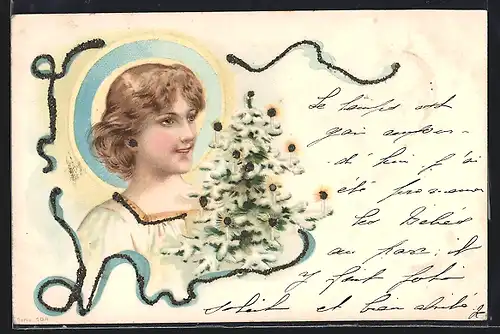 Le temps est
gai aujour-
d'hui j'ai
été promener
les bébés
au parc; il
y fait fort
soleil et bien
Serie 184